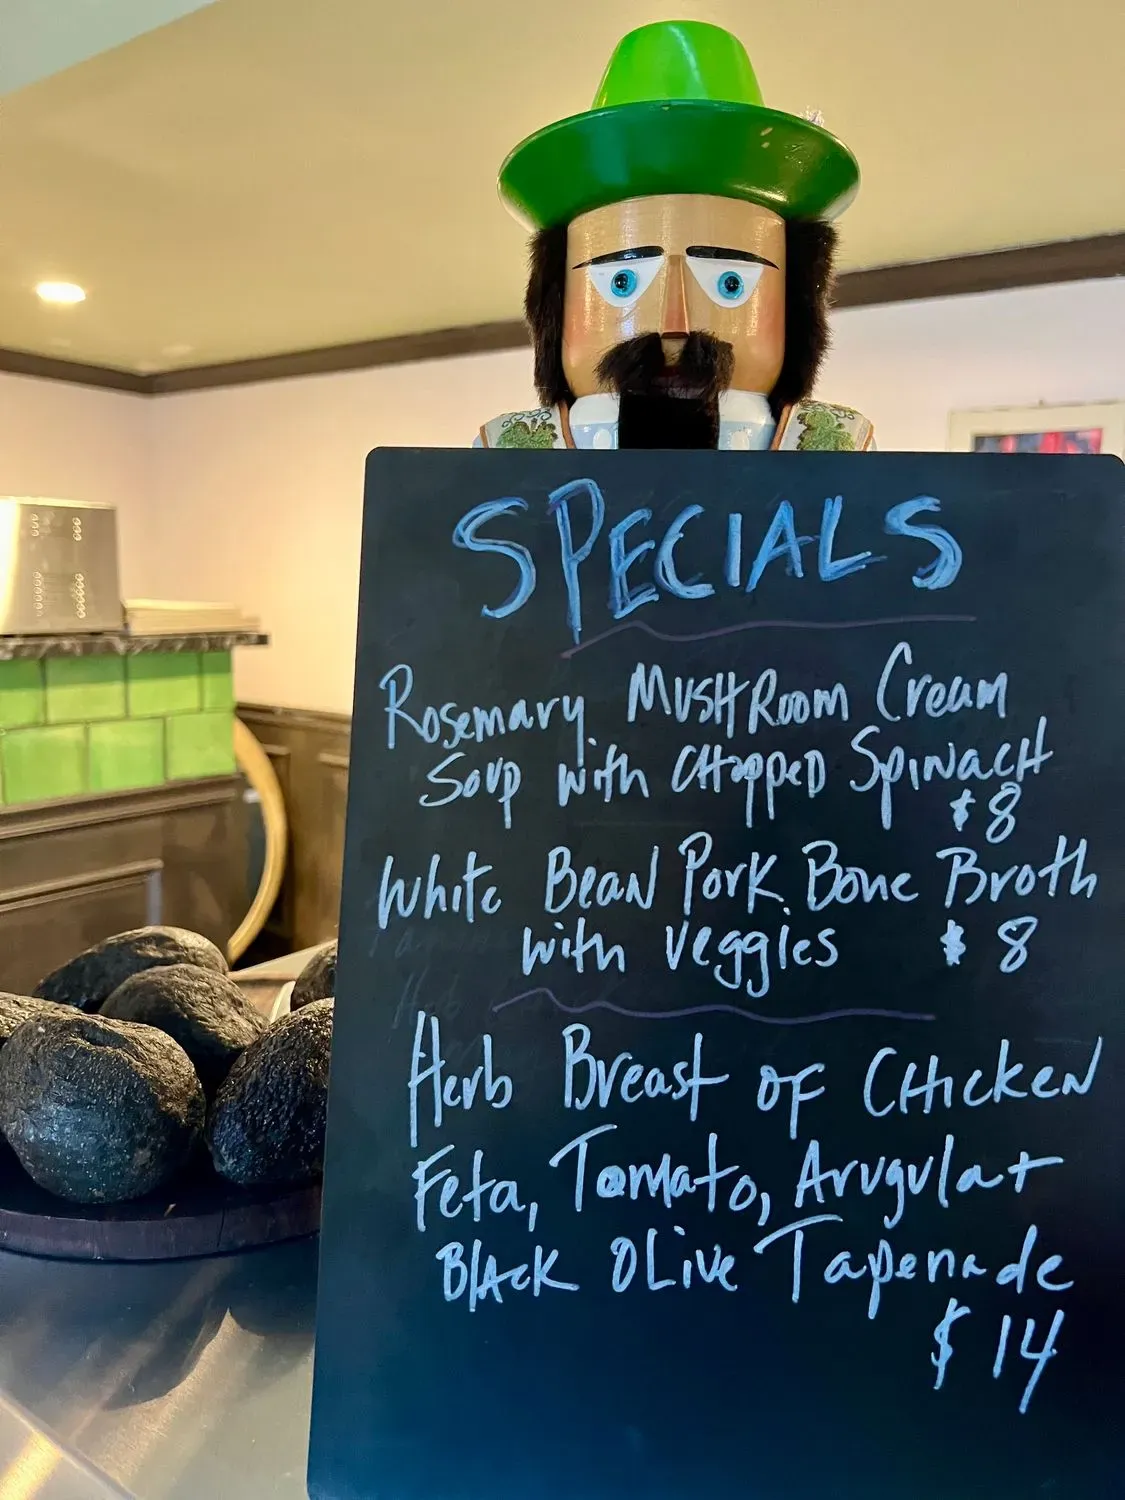 SPECIALS
Rosemary MUSHROOM Cream
Soup with CHopped SpiNacH
$8
White BeaN Pork Bone Broth
with veggies $8
Herb Breast oF CHickeN
Feta, Tomato, Arugula +
BlAck OLive Tapenade
$14